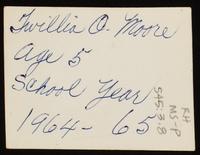 Twillia O. Moore
Age 5
School Year
1964-65
RH
MS-P
545:3.8